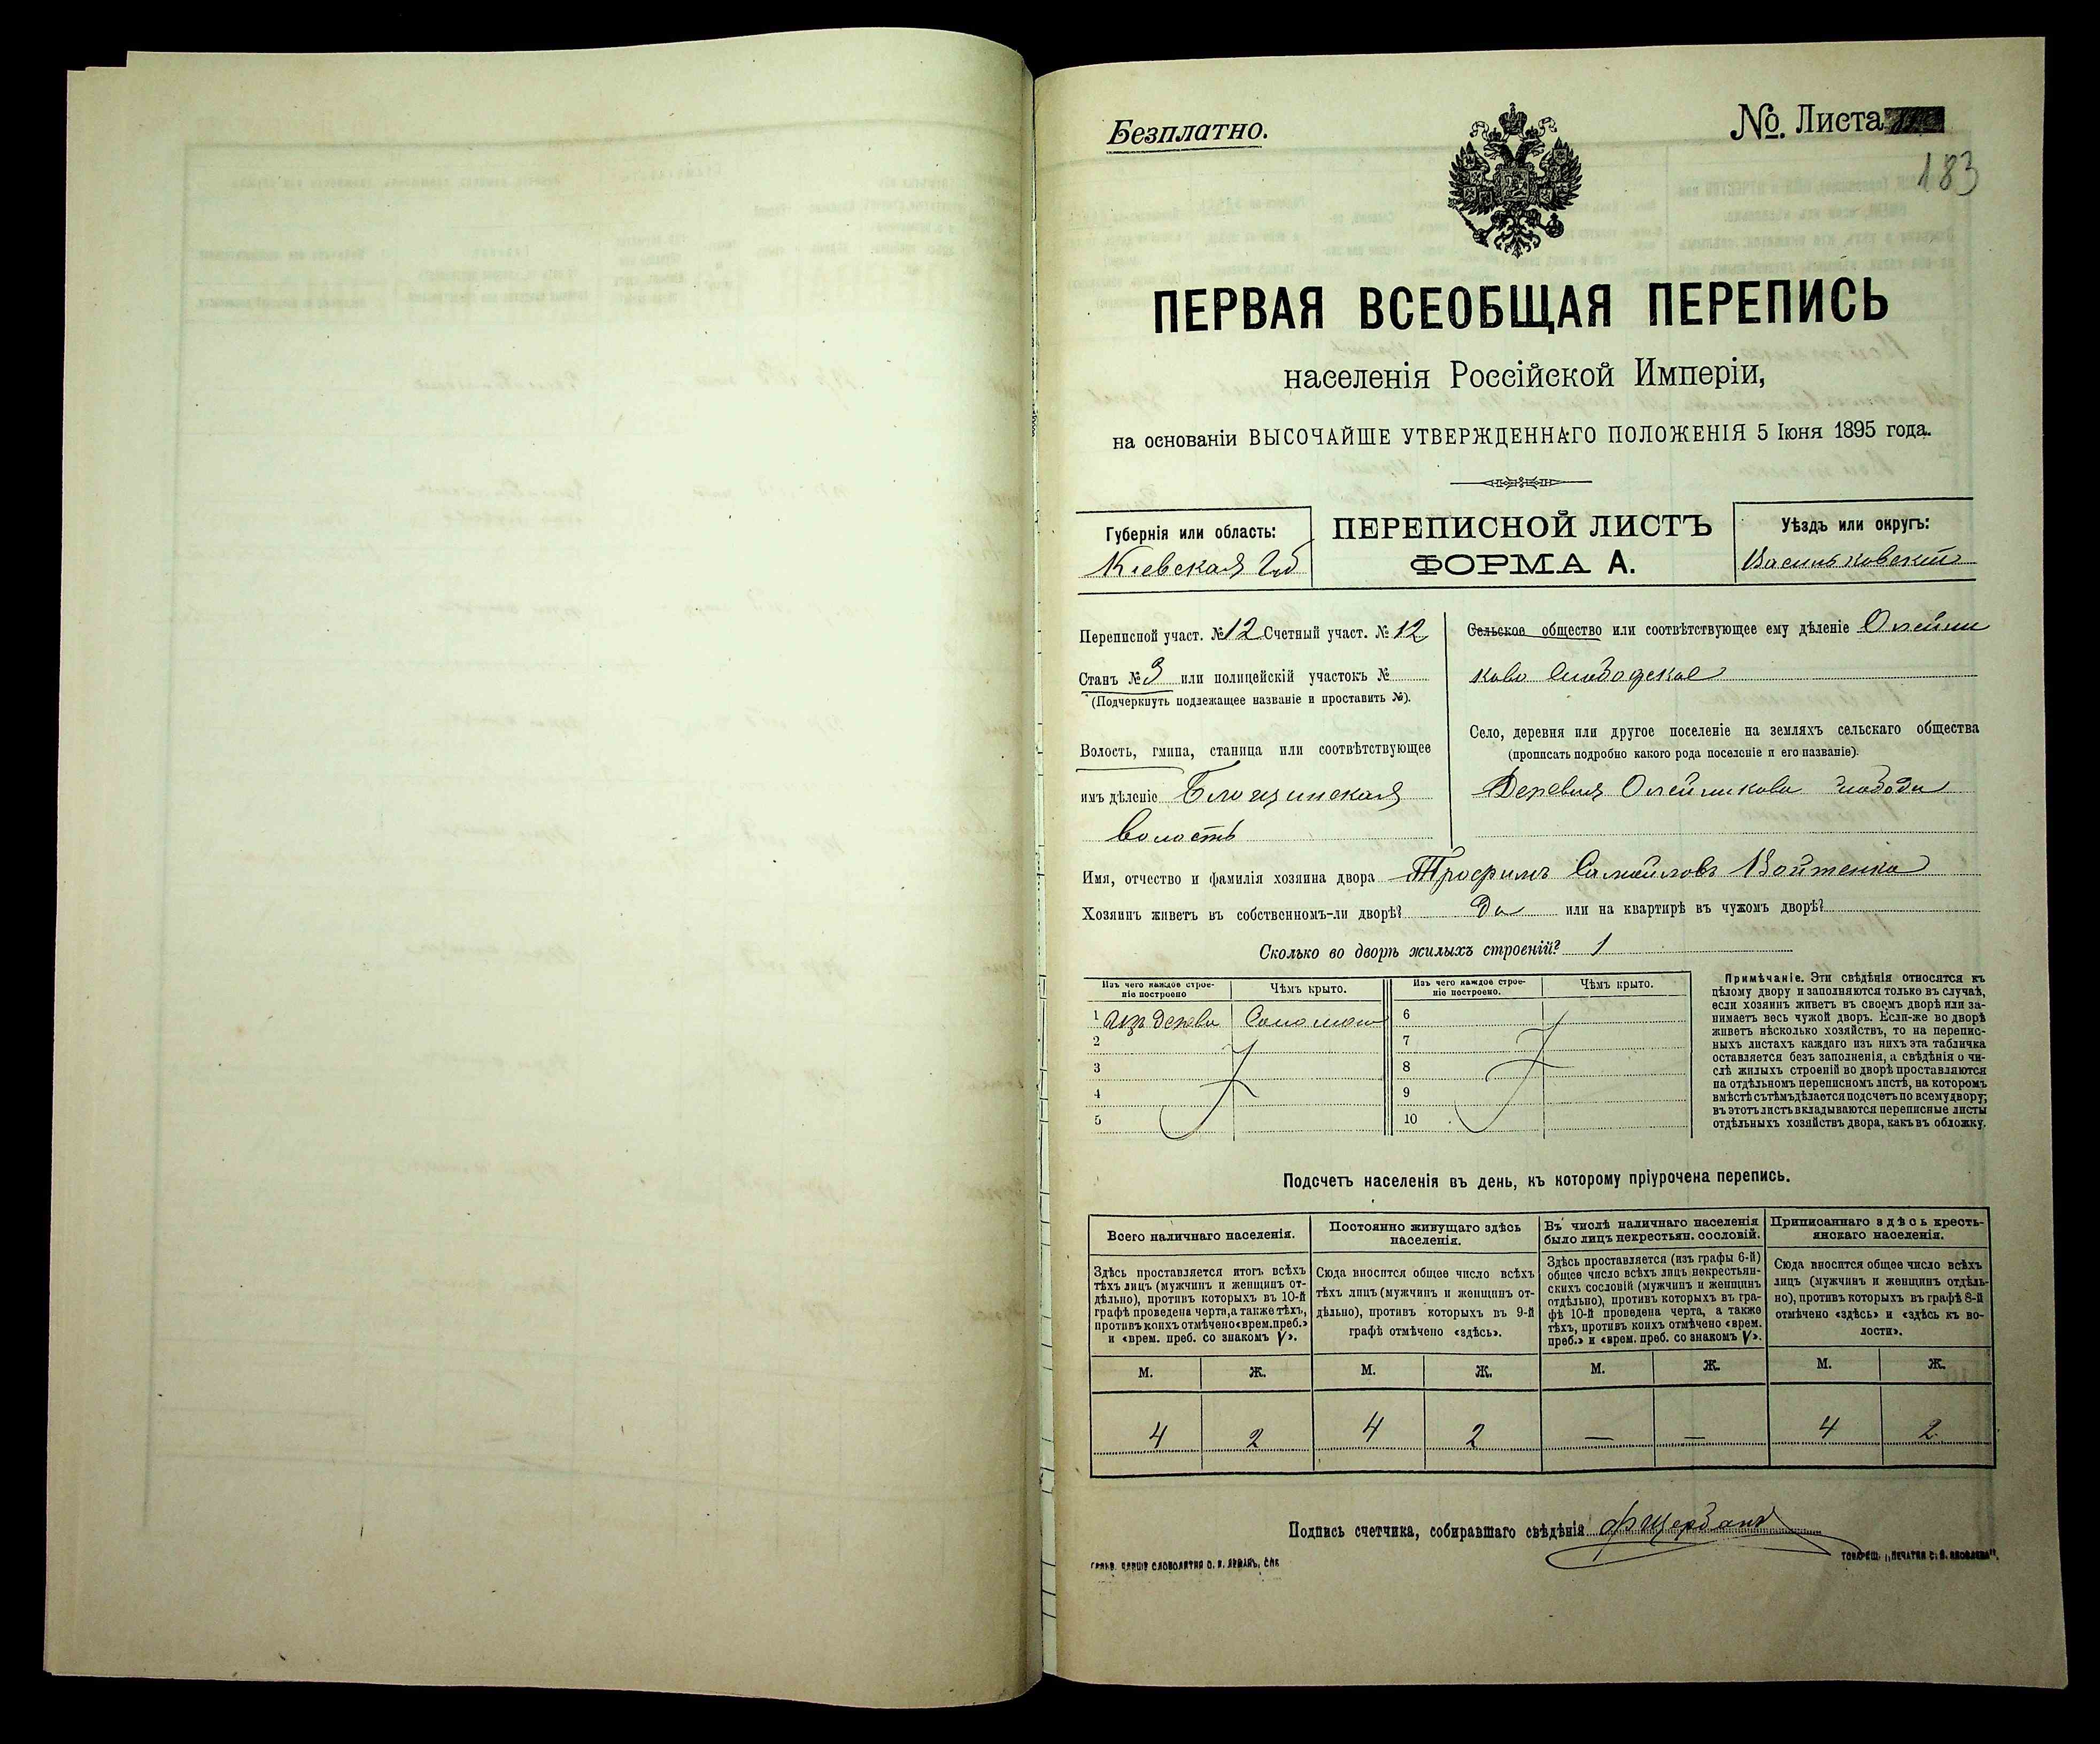 Безплатно.
№ Листа
183
ПЕРВАЯ ВСЕОБЩАЯ ПЕРЕПИСЬ
населенія Россійской Имперіи,
на основаніи ВЫСОЧАЙШЕ УТВЕРЖДЕННАГО ПОЛОЖЕНІЯ 5 Іюня 1895 года.
Губернія или область:
Кіевская Губ
ПЕРЕПИСНОЙ ЛИСТЪ
ФОРМА А.
Уѣздъ или округъ:
Васильковскій
Переписной участ. № 12 Счетный участ. № 12
Станъ № 3 или полицейскій участокъ №
(Подчеркнуть подлежащее названіе и проставить №).
Волость, гмина, станица или соотвѣтствующее
имъ дѣленіе Блощинская
волость
Сельское общество или соотвѣтствующее ему дѣленіе Олейни
ково слободское
Село, деревня или другое поселеніе на земляхъ сельскаго общества
(прописать подробно какого рода поселеніе и его названіе).
Деревня Олейникова слобода
Имя, отчество и фамилія хозяина двора Трофимъ Самойловъ Войтенко
Хозяинъ живетъ въ собственномъ-ли дворѣ? Да или на квартирѣ въ чужомъ дворѣ?
Сколько во дворѣ жилыхъ строеній? 1
Изъ чего каждое строе-
ніе построено
Чѣмъ крыто.
Изъ чего каждое строе-
ніе построено.
Чѣмъ крыто.
1 Изъ дерева Соломою
2
3
4
5
6
7
8
9
10
Примѣчаніе. Эти свѣдѣнія относятся къ
цѣлому двору и заполняются только въ случаѣ,
если хозяинъ живетъ въ своемъ дворѣ или за-
нимаетъ весь чужой дворъ. Если-же во дворѣ
живетъ нѣсколько хозяйствъ, то на перепис-
ныхъ листахъ каждаго изъ нихъ эта табличка
оставляется безъ заполненія, а свѣдѣнія о чи-
слѣ жилыхъ строеній во дворѣ проставляются
на отдѣльномъ переписномъ листѣ, на которомъ
вмѣстѣ съ тѣмъ дѣлается подсчетъ по всему двору;
въ этотъ листъ вкладываются переписные листы
отдѣльныхъ хозяйствъ двора, какъ въ обложку.
Подсчетъ населенія въ день, къ которому пріурочена перепись.
Всего наличнаго населенія.
Здѣсь проставляется итогъ всѣхъ
тѣхъ лицъ (мужчинъ и женщинъ от-
дѣльно), противъ которыхъ въ 10-й
графѣ проведена черта, а также тѣхъ,
противъ коихъ отмѣчено «врем. преб.»
и «врем. преб. со знакомъ V».
Постоянно живущаго здѣсь
населенія.
Сюда вносится общее число всѣхъ
тѣхъ лицъ (мужчинъ и женщинъ от-
дѣльно), противъ которыхъ въ 9-й
графѣ отмѣчено «здѣсь».
Въ числѣ наличнаго населенія
было лицъ некрестьян. сословій.
Здѣсь проставляется (изъ графы 6-й)
общее число всѣхъ лицъ некрестьян-
скихъ сословій (мужчинъ и женщинъ
отдѣльно), противъ которыхъ въ гра-
фѣ 10-й проведена черта, а также
тѣхъ, противъ коихъ отмѣчено «врем.
преб.» и «врем. преб. со знакомъ V».
Приписаннаго здѣсь кресть-
янскаго населенія.
Сюда вносится общее число всѣхъ
лицъ (мужчинъ и женщинъ отдѣль-
но), противъ которыхъ въ графѣ 8-й
отмѣчено «здѣсь» и «здѣсь къ во-
лости».
М. Ж. М. Ж. М. Ж. М. Ж.
4 2 4 2 — — 4 2
Подпись счетчика, собиравшаго свѣдѣнія Ф Щербакъ